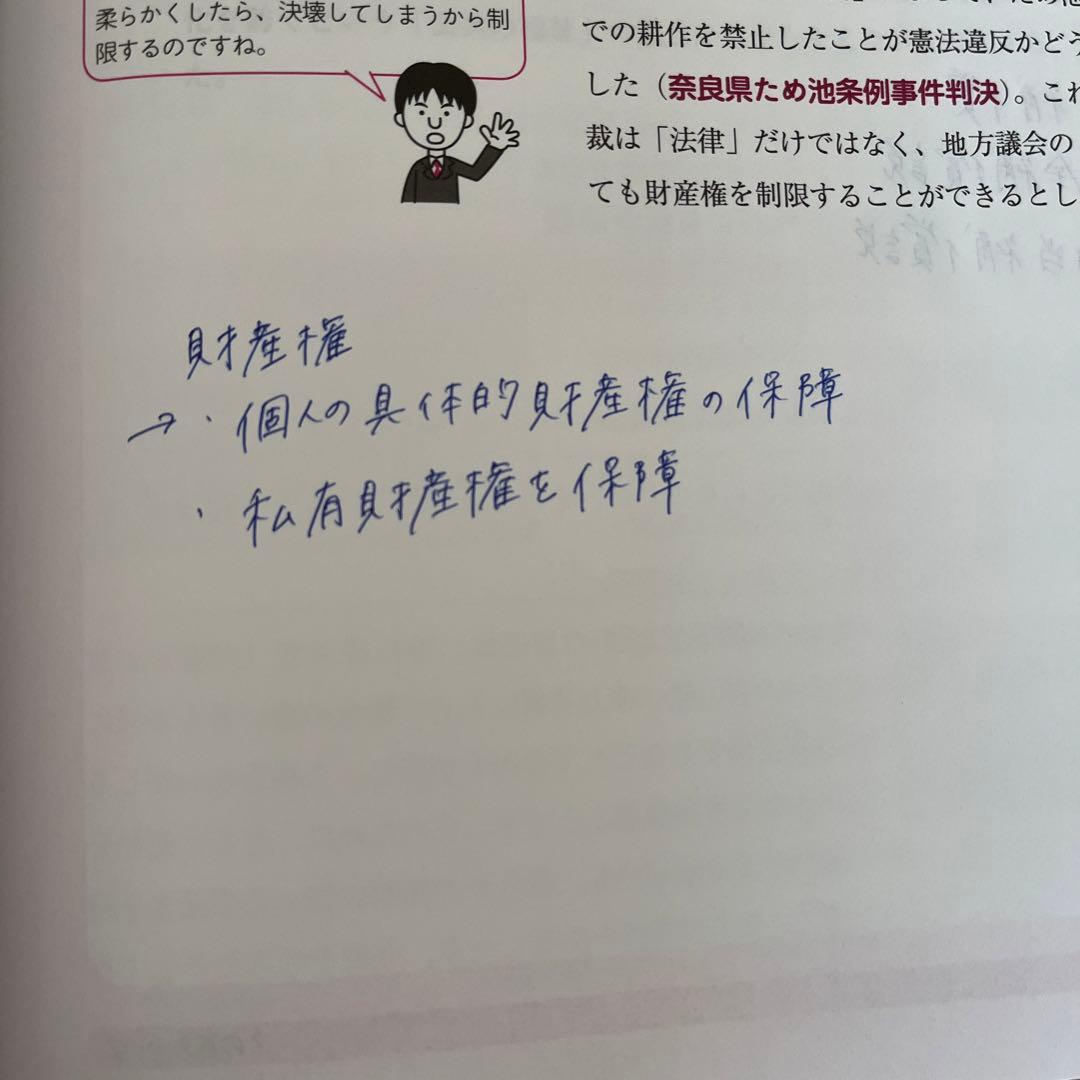 柔らかくしたら、決壊してしまうから制
限するのですね。
での耕作を禁止したことが憲法違反かどう
した（奈良県ため池条例事件判決）。これ
裁は「法律」だけではなく、地方議会の
ても財産権を制限することができるとし
財産権
→・個人の具体的財産権の保障
・私有財産権を保障